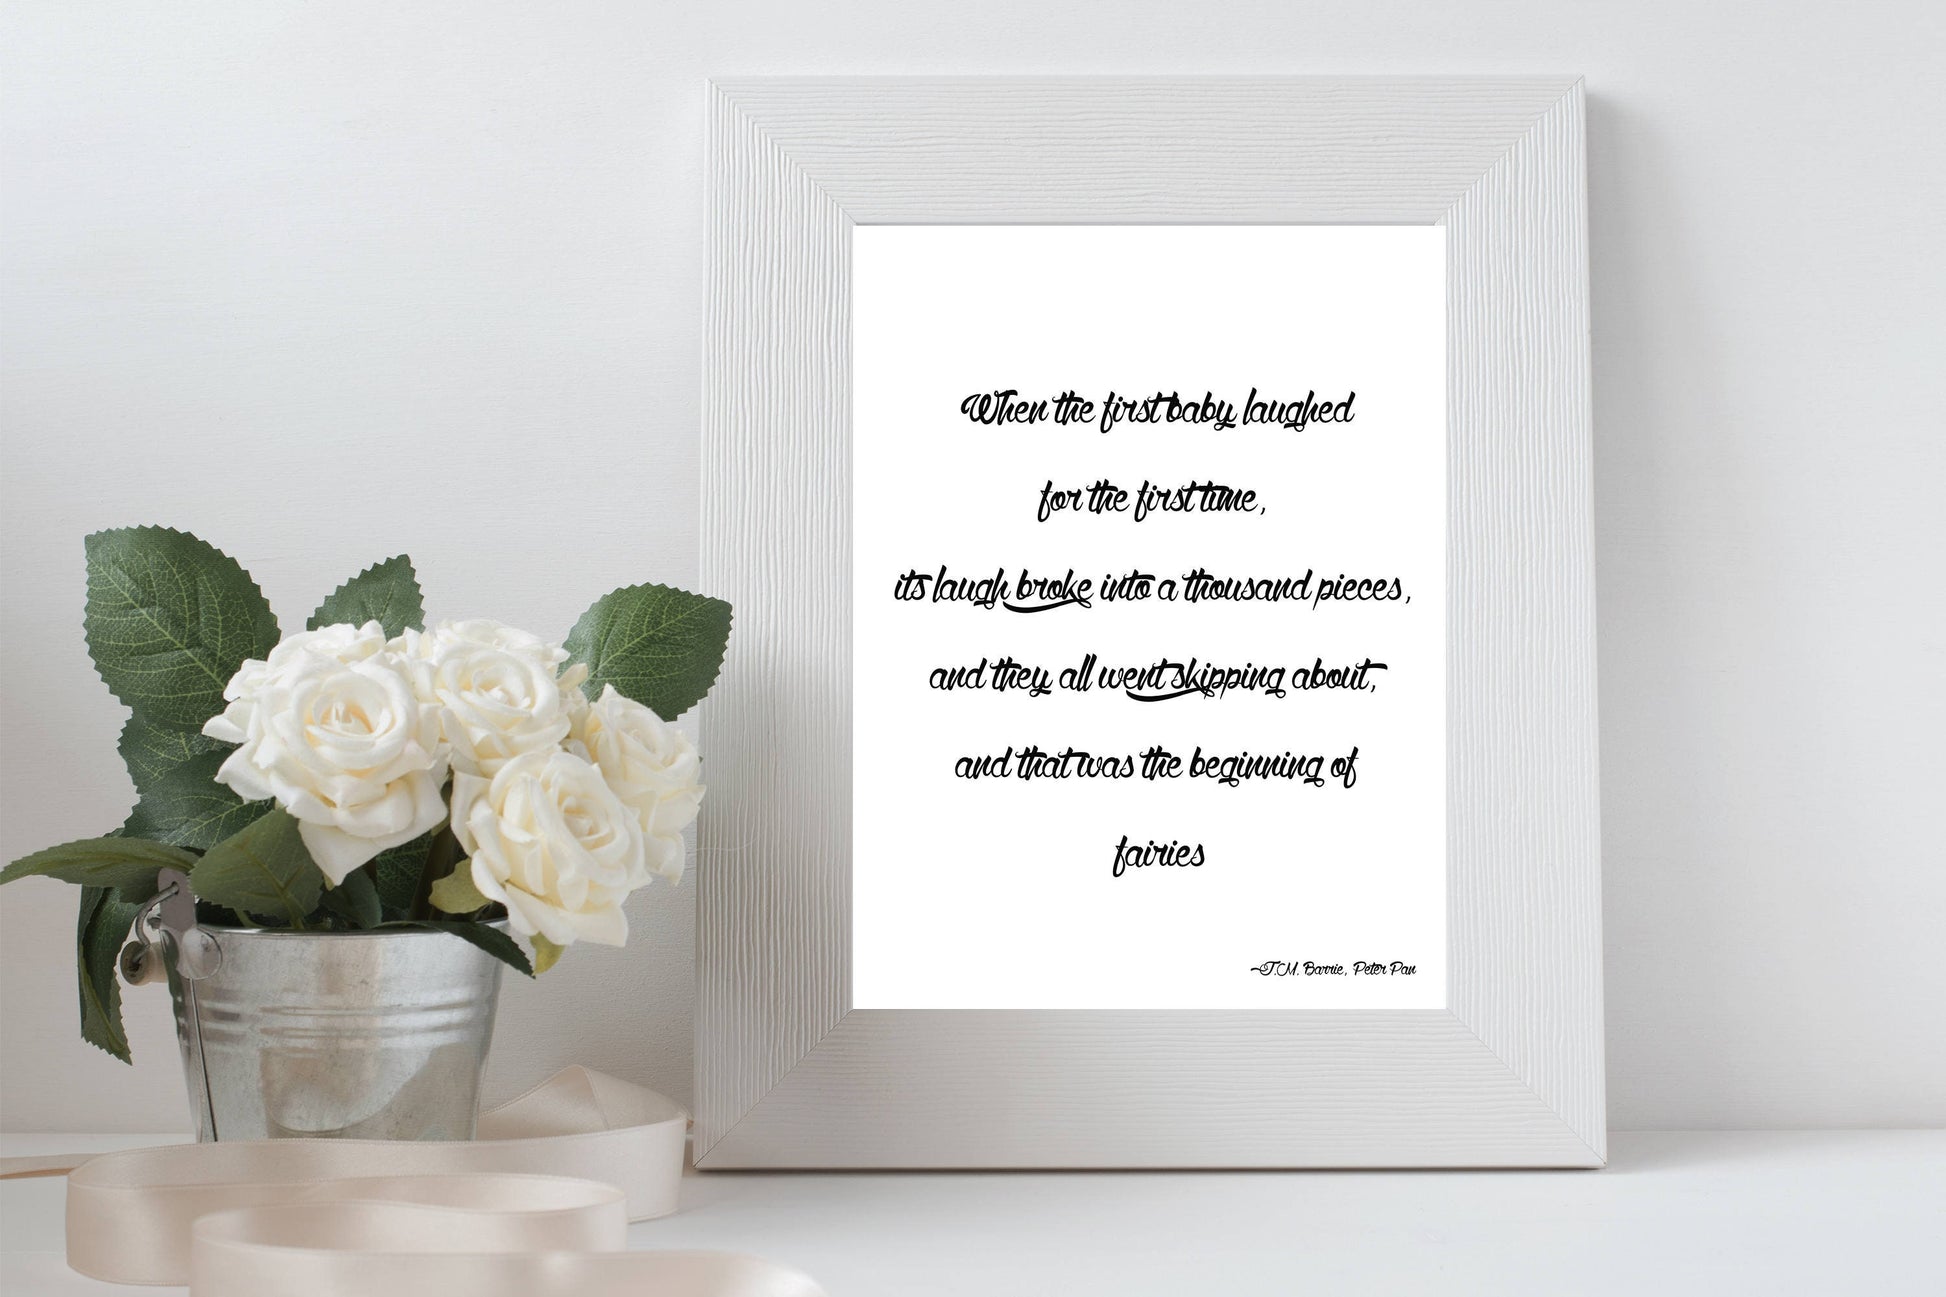 When the first baby laughed
for the first time,
its laugh broke into a thousand pieces,
and they all went skipping about,
and that was the beginning of
fairies
~J.M. Barrie, Peter Pan